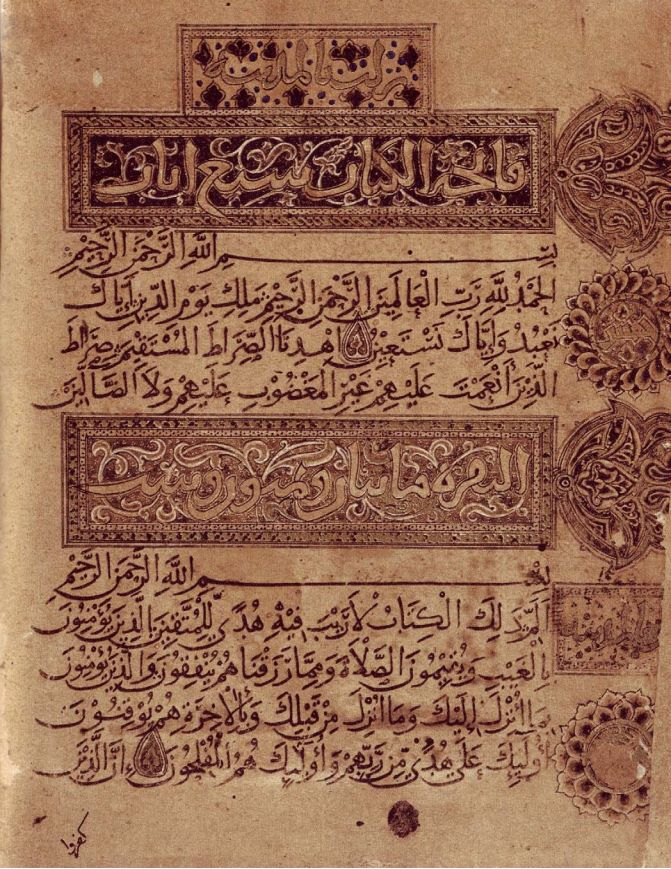 نزلت بالمدينة
فاتحة الكتاب سبع ايات
بِسْمِ اللَّهِ الرَّحْمَنِ الرَّحِيمِ
الْحَمْدُ لِلَّهِ رَبِّ الْعَالَمِينَ الرَّحْمَنِ الرَّحِيمِ مَلِكِ يَوْمِ الدِّينِ إِيَّاكَ
نَعْبُدُ وَإِيَّاكَ نَسْتَعِينُ اهْدِنَا الصِّرَاطَ الْمُسْتَقِيمَ صِرَاطَ
الَّذِينَ أَنْعَمْتَ عَلَيْهِمْ غَيْرِ الْمَغْضُوبِ عَلَيْهِمْ وَلَا الضَّالِّينَ
البقرة مايتان وثمنون وست
بِسْمِ اللَّهِ الرَّحْمَنِ الرَّحِيمِ
الم ذَلِكَ الْكِتَابُ لَا رَيْبَ فِيهِ هُدًى لِلْمُتَّقِينَ الَّذِينَ يُؤْمِنُونَ
بِالْغَيْبِ وَيُقِيمُونَ الصَّلَاةَ وَمِمَّا رَزَقْنَاهُمْ يُنْفِقُونَ وَالَّذِينَ يُؤْمِنُونَ
بِمَا أُنْزِلَ إِلَيْكَ وَمَا أُنْزِلَ مِنْ قَبْلِكَ وَبِالْآخِرَةِ هُمْ يُوقِنُونَ
أُولَئِكَ عَلَى هُدًى مِنْ رَبِّهِمْ وَأُولَئِكَ هُمُ الْمُفْلِحُونَ إِنَّ الَّذِينَ
كفروا